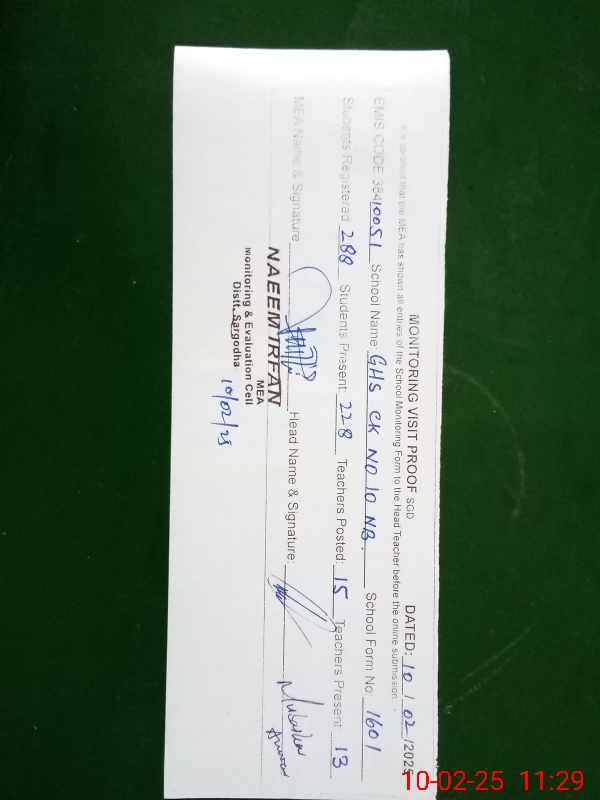 MONITORING VISIT PROOF SGD DATED: 10 / 02 /2025
It is certified that the MEA has shown all entries of the School Monitoring Form to the Head Teacher before the online submission.
EMIS CODE 38410051 School Name: GHS CK NO 10 NB. School Form No. 1601
Students Registered 288 Students Present: 228 Teachers Posted: 15 Teachers Present 13
MEA Name & Signature Head Name & Signature:
NAEEM IRFAN
MEA
Monitoring & Evaluation Cell
Distt. Sargodha
10/02/25
10-02-25 11:29